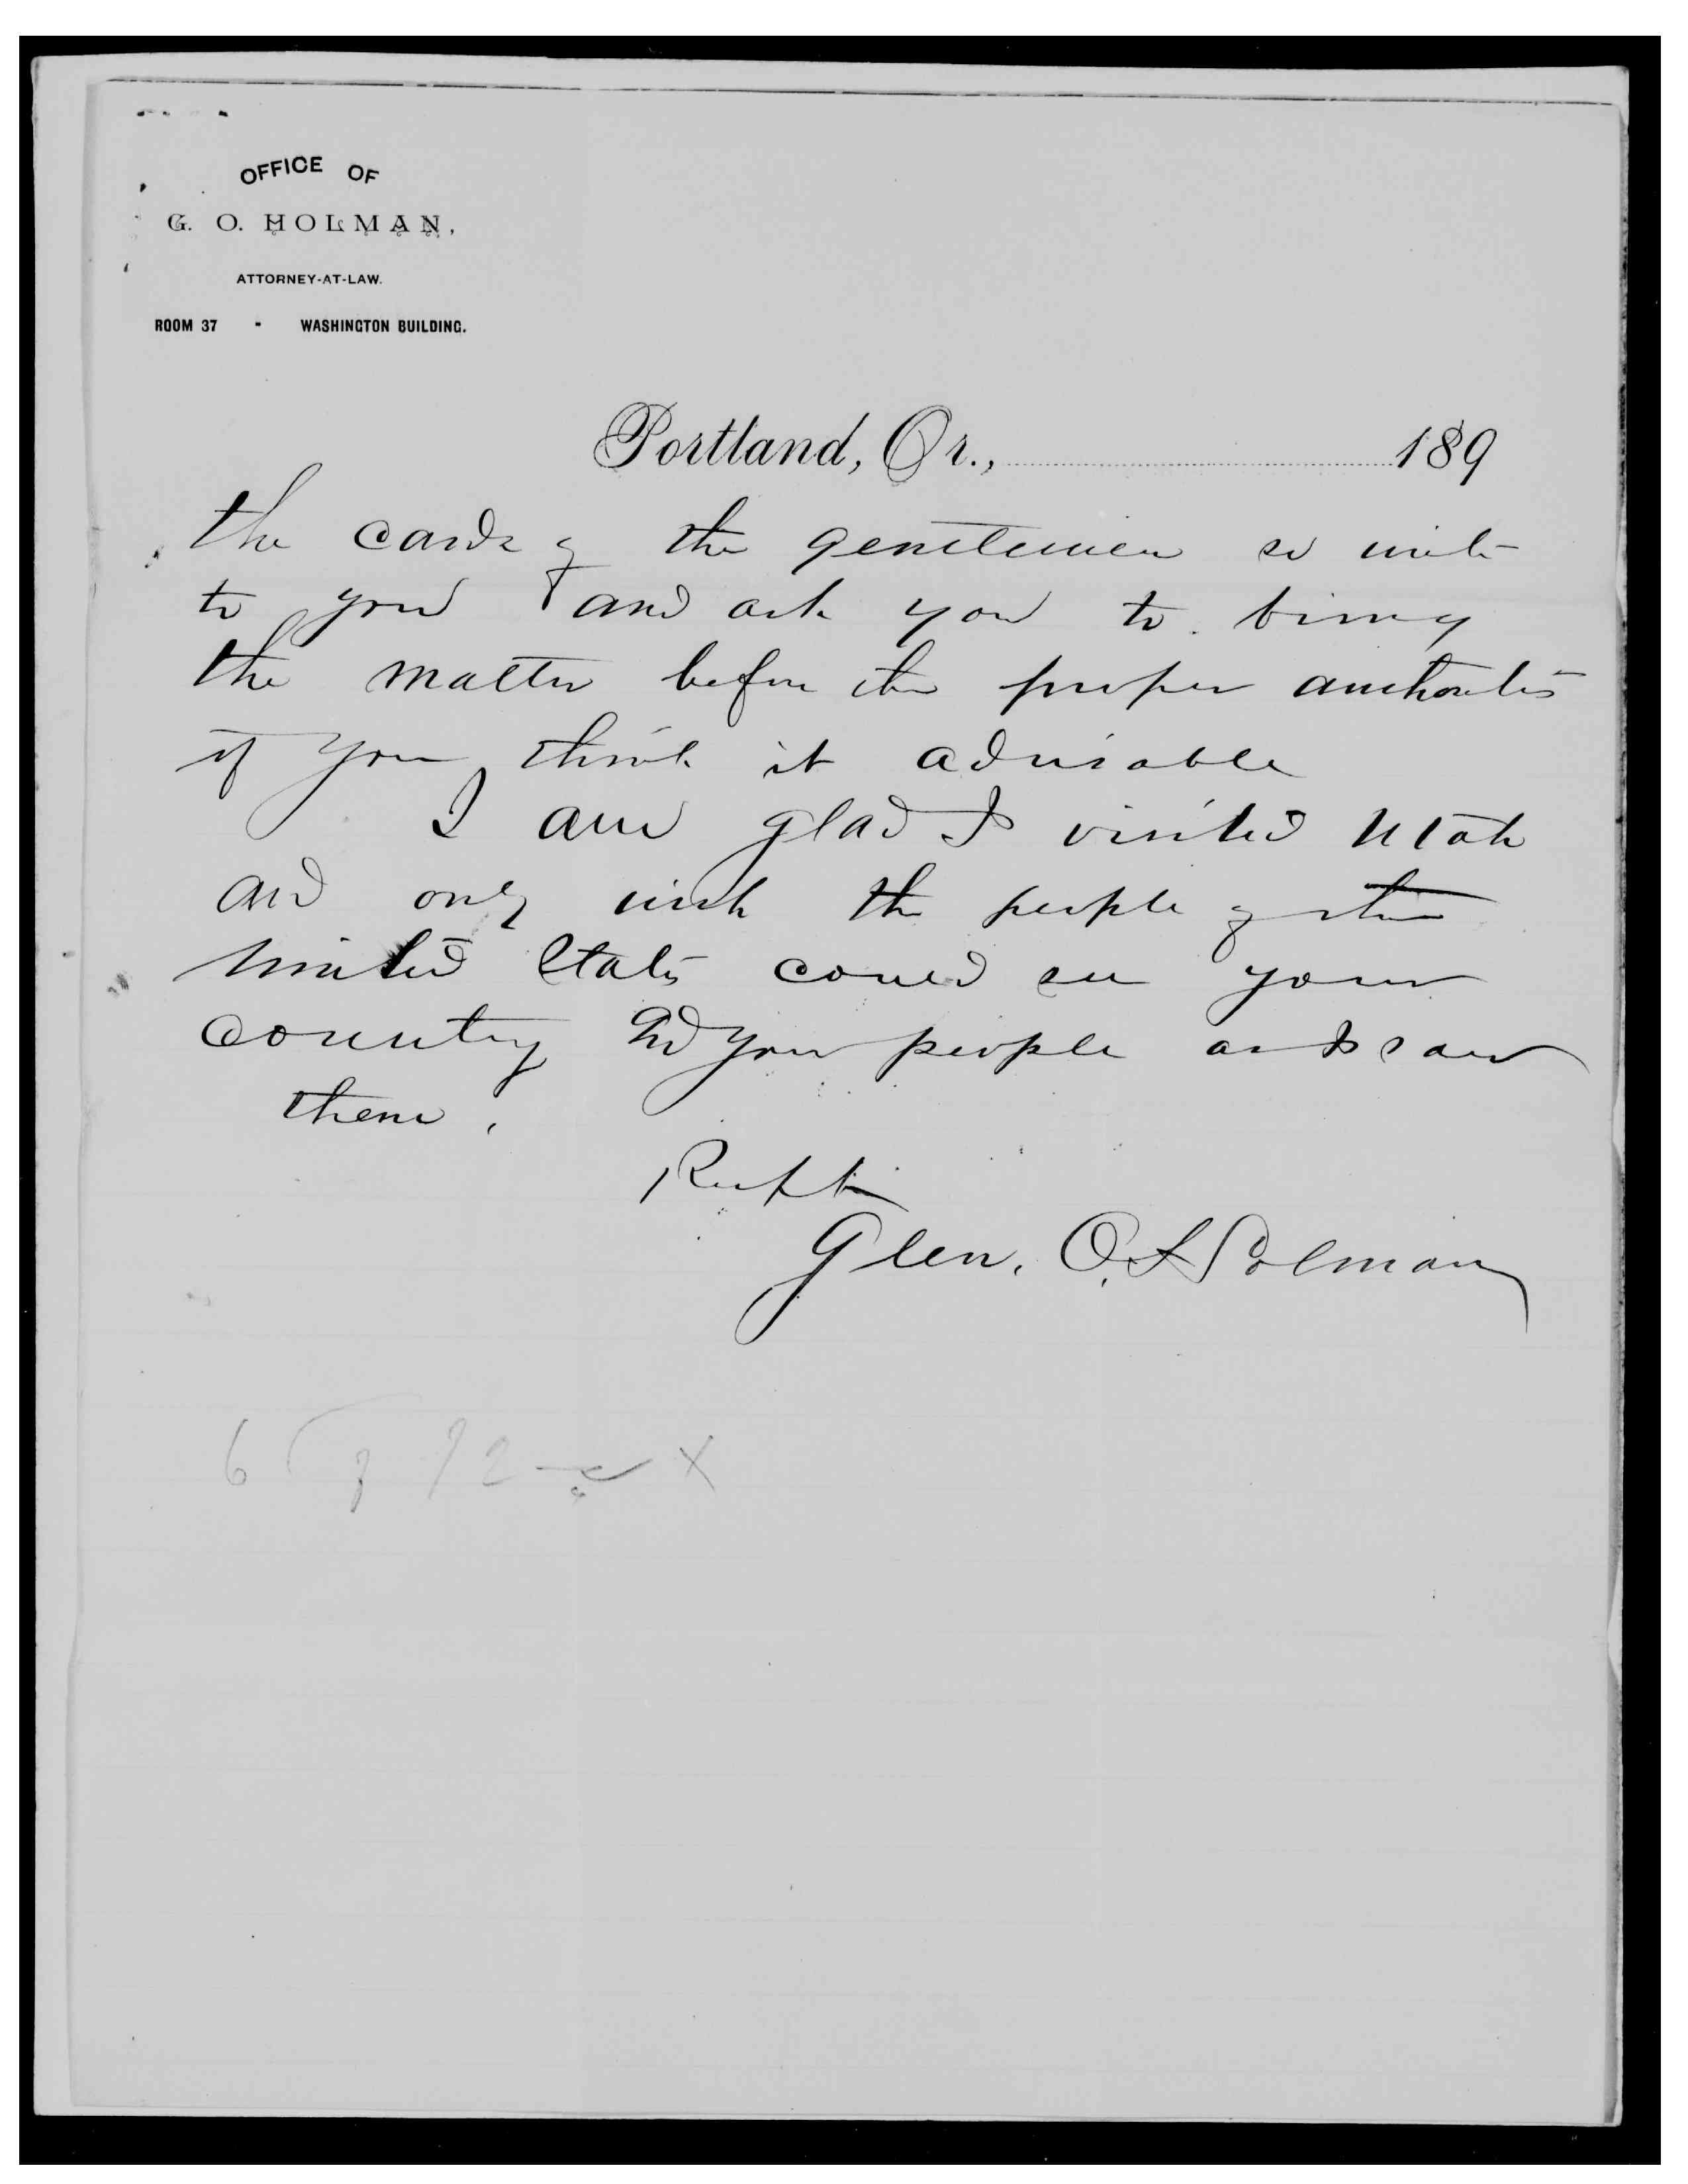 OFFICE OF
G. O. HOLMAN,
ATTORNEY-AT-LAW.
ROOM 37 - WASHINGTON BUILDING.
Portland, Or., 189
the cards of the gentlemen so
to you and ask you to bring
the matter before the proper authorities
if you think it advisable
I am glad I visited Utah
and only wish the people of the
United States could see your
country and your people as I saw
them.
Respt
Glen. O. Holman